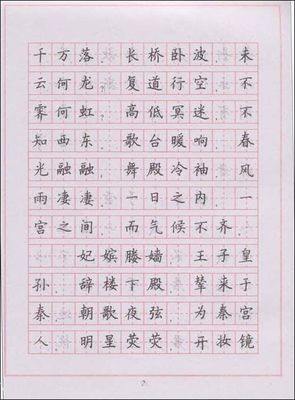 千万落 长桥卧波 未
云何龙 复道行空 不
霁何虹 高低冥迷 不
知西东 歌台暖响 春
光融融 舞殿冷袖 风
雨凄凄 一日之内 一
宫之间 而气候不齐
妃嫔媵嫱 王子皇
孙 辞楼下殿 辇来于
秦 朝歌夜弦 为秦宫
人 明星荧荧 开妆镜